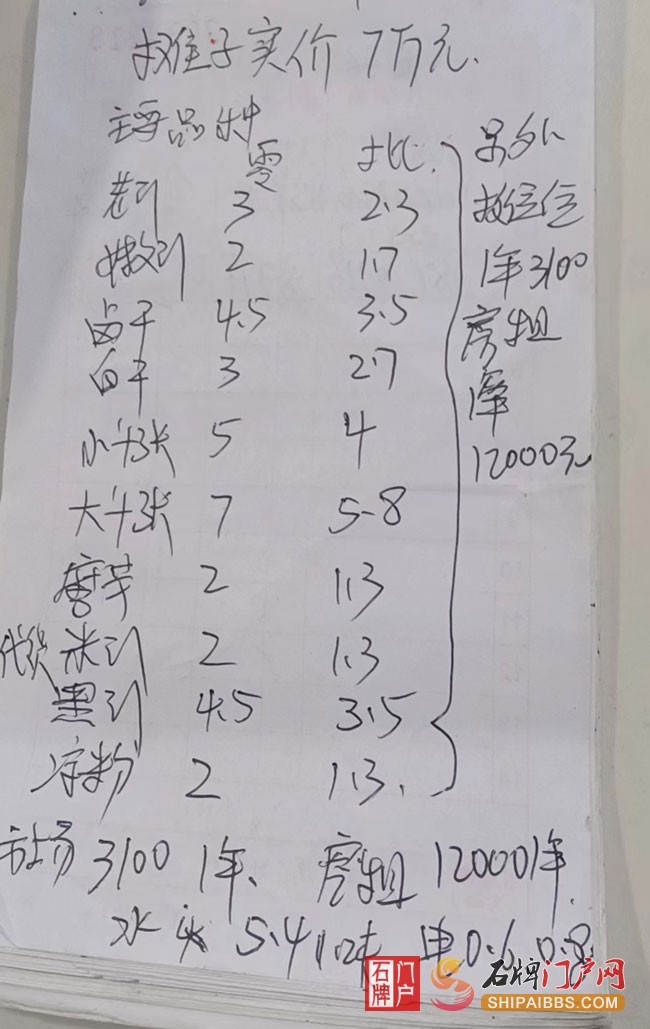 摊子实价7万元.
主要品种
零 批.
老豆 3 2.3
嫩豆 2 1.7
卤干 4.5 3.5
白干 3 2.7
小千张 5 4
大千张 7 5.8
唐芋 2 1.3
代货 米豆 2 1.3
黑豆 4.5 3.5
凉粉 2 1.3.
另外
摊位
1年3100
房租
12000元
市场3100 1年、房租12000 1年.
水 5.4 1吨 电0.6 0.8
石牌 门户
石牌门户网
SHIPAIBBS.COM